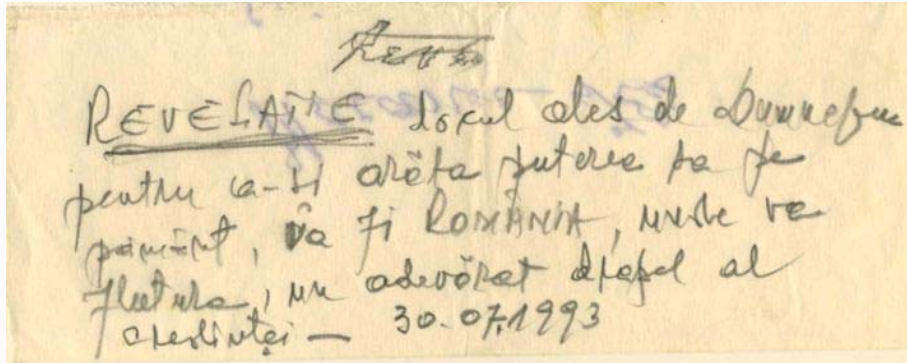 REVELAȚIE locul ales de Dumnezeu
pentru a-și arăta puterea sa pe
pământ, va fi ROMÂNIA, unde va
flutura, un adevărat drapel al
credinței — 30.07.1993